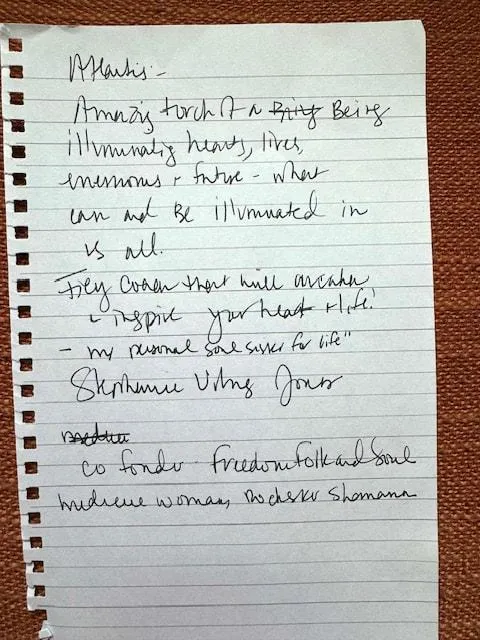 Atlantis:-
Amazing torch of a Being Being
illuminating hearts, lives,
+ future - what
can and be illuminated in
us all.
Fiery Coach that will awaken
+ inspire your heart + life!
- my personal soul sister for life"
Stephanie Jones
co fonder - Freedom Folk and Soul
medicine woman, Shaman